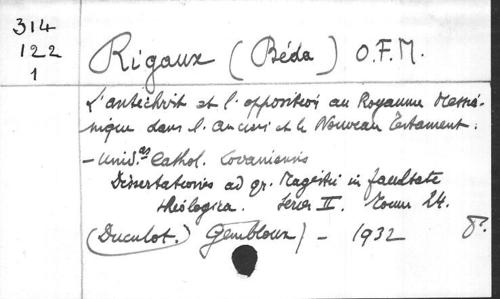 314
122
1
Rigaux (Béda) O.F.M.
L'antéchrist et l'opposition au Royaume Messia-
nique dans l'Ancien et le Nouveau Testament.
- Univ.as Cathol. Lovaniensis
Dissertationes ad gr. Magistri in facultate
theologica. Series II. Tomus 24.
(Duculot.) Gembloux) - 1932 8°.